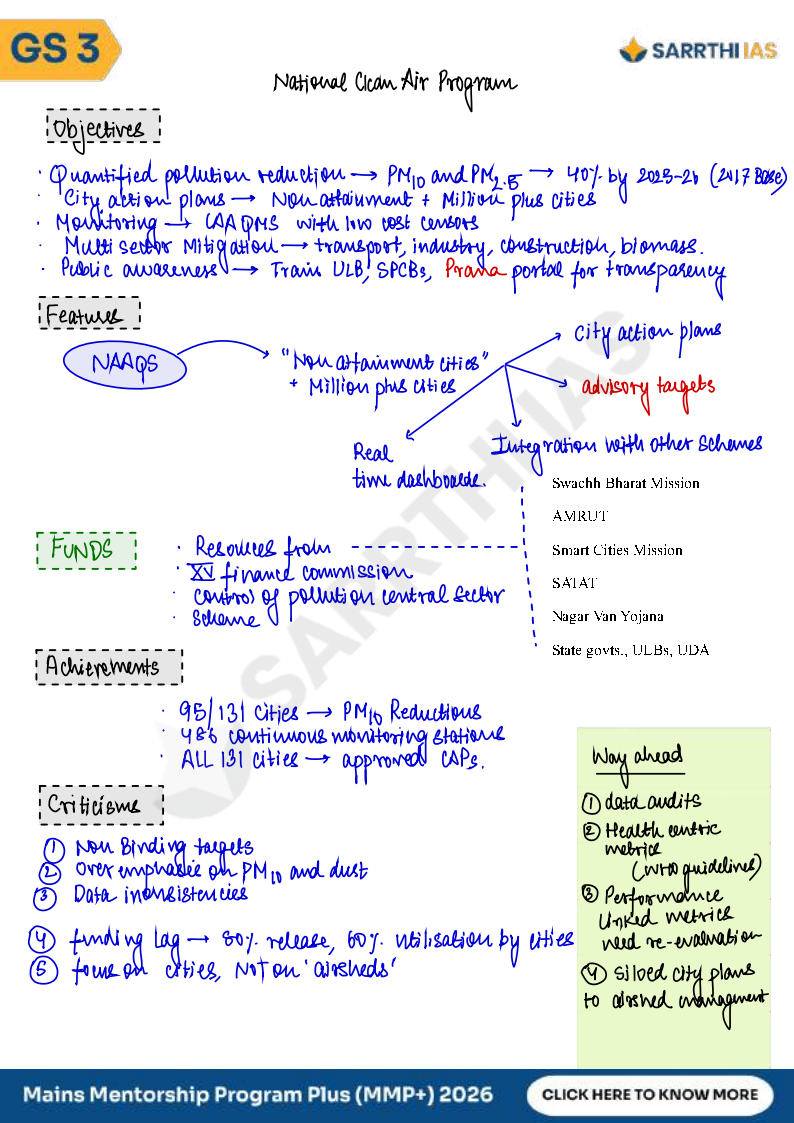 GS 3
SARRTHI IAS
National Clean Air Program
Objectives
· Quantified pollution reduction → PM10 and PM2.5 → 40% by 2025-26 (2017 Base)
· City action plans → Non attainment + Million plus cities
· Monitoring → CAAQMS with low cost censors
· Multi sector Mitigation → transport, industry, construction, biomass.
· Public awareness → Train ULB, SPCBs, Prana portal for transparency
Features
NAAQS
"Non attainment cities"
+ Million plus cities
City action plans
advisory targets
Integration with other schemes
Real
time dashboards.
Swachh Bharat Mission
AMRUT
Smart Cities Mission
SATAT
Nagar Van Yojana
State govts., ULBs, UDA
FUNDS
· Resources from
· XV finance commission
· Control of pollution central sector
· Scheme
Achievements
· 95/131 cities → PM10 Reductions
· 486 continuous monitoring stations
· ALL 131 cities → approved CAPs.
Criticisms
1 Non Binding targets
2 Over emphasie on PM10 and dust
3 Data inconsistencies
4 funding lag → 80% release, 60% utilisation by cities
5 focus on cities, Not on 'airsheds'
Way ahead
1 data audits
2 Health centric
metrics
(WHO guidelines)
3 Performance
linked metrics
need re-evaluation
4 Siloed city plans
to airshed management
SARRTHI IAS
Mains Mentorship Program Plus (MMP+) 2026
CLICK HERE TO KNOW MORE